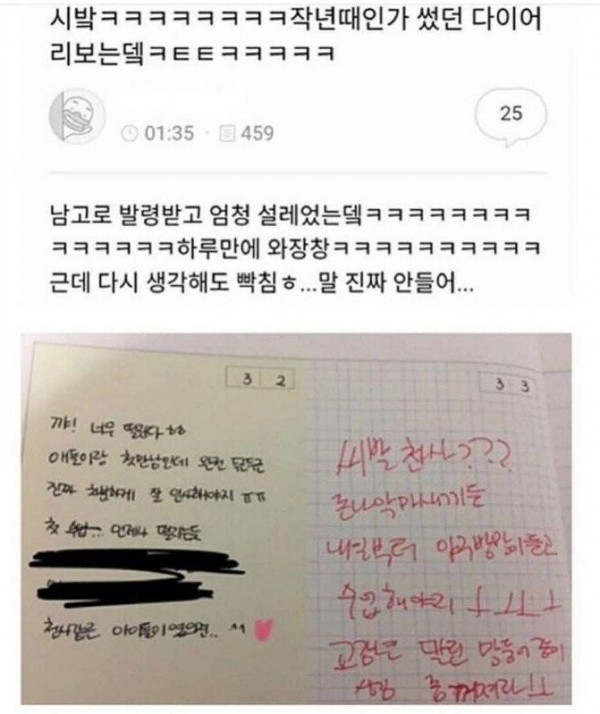 시밬ㅋㅋㅋㅋㅋㅋㅋㅋ작년때인가 썼던 다이어
리보는뎈ㅋㅌㅌㅋㅋㅋㅋㅋ
25
01:35 · 459
남고로 발령받고 엄청 설레었는뎈ㅋㅋㅋㅋㅋㅋㅋ
ㅋㅋㅋㅋㅋㅋ하루만에 와장창ㅋㅋㅋㅋㅋㅋㅋㅋㅋㅋ
근데 다시 생각해도 빡침ㅎ...말 진짜 안들어...
3 2
꺄! 너무 떨린다 ㅎㅎ
애들이랑 첫만남인데 완전 두근두근
진짜 차분하게 잘 인사해야지 ㅠㅠ
첫 수업... 언제나 떨리는듯
천사같은 아이들이였으면.. ^^
3 3
씨발 천사???
존나 악마새끼들
내일부터 야구방망이 들고
수업해야지
고정은